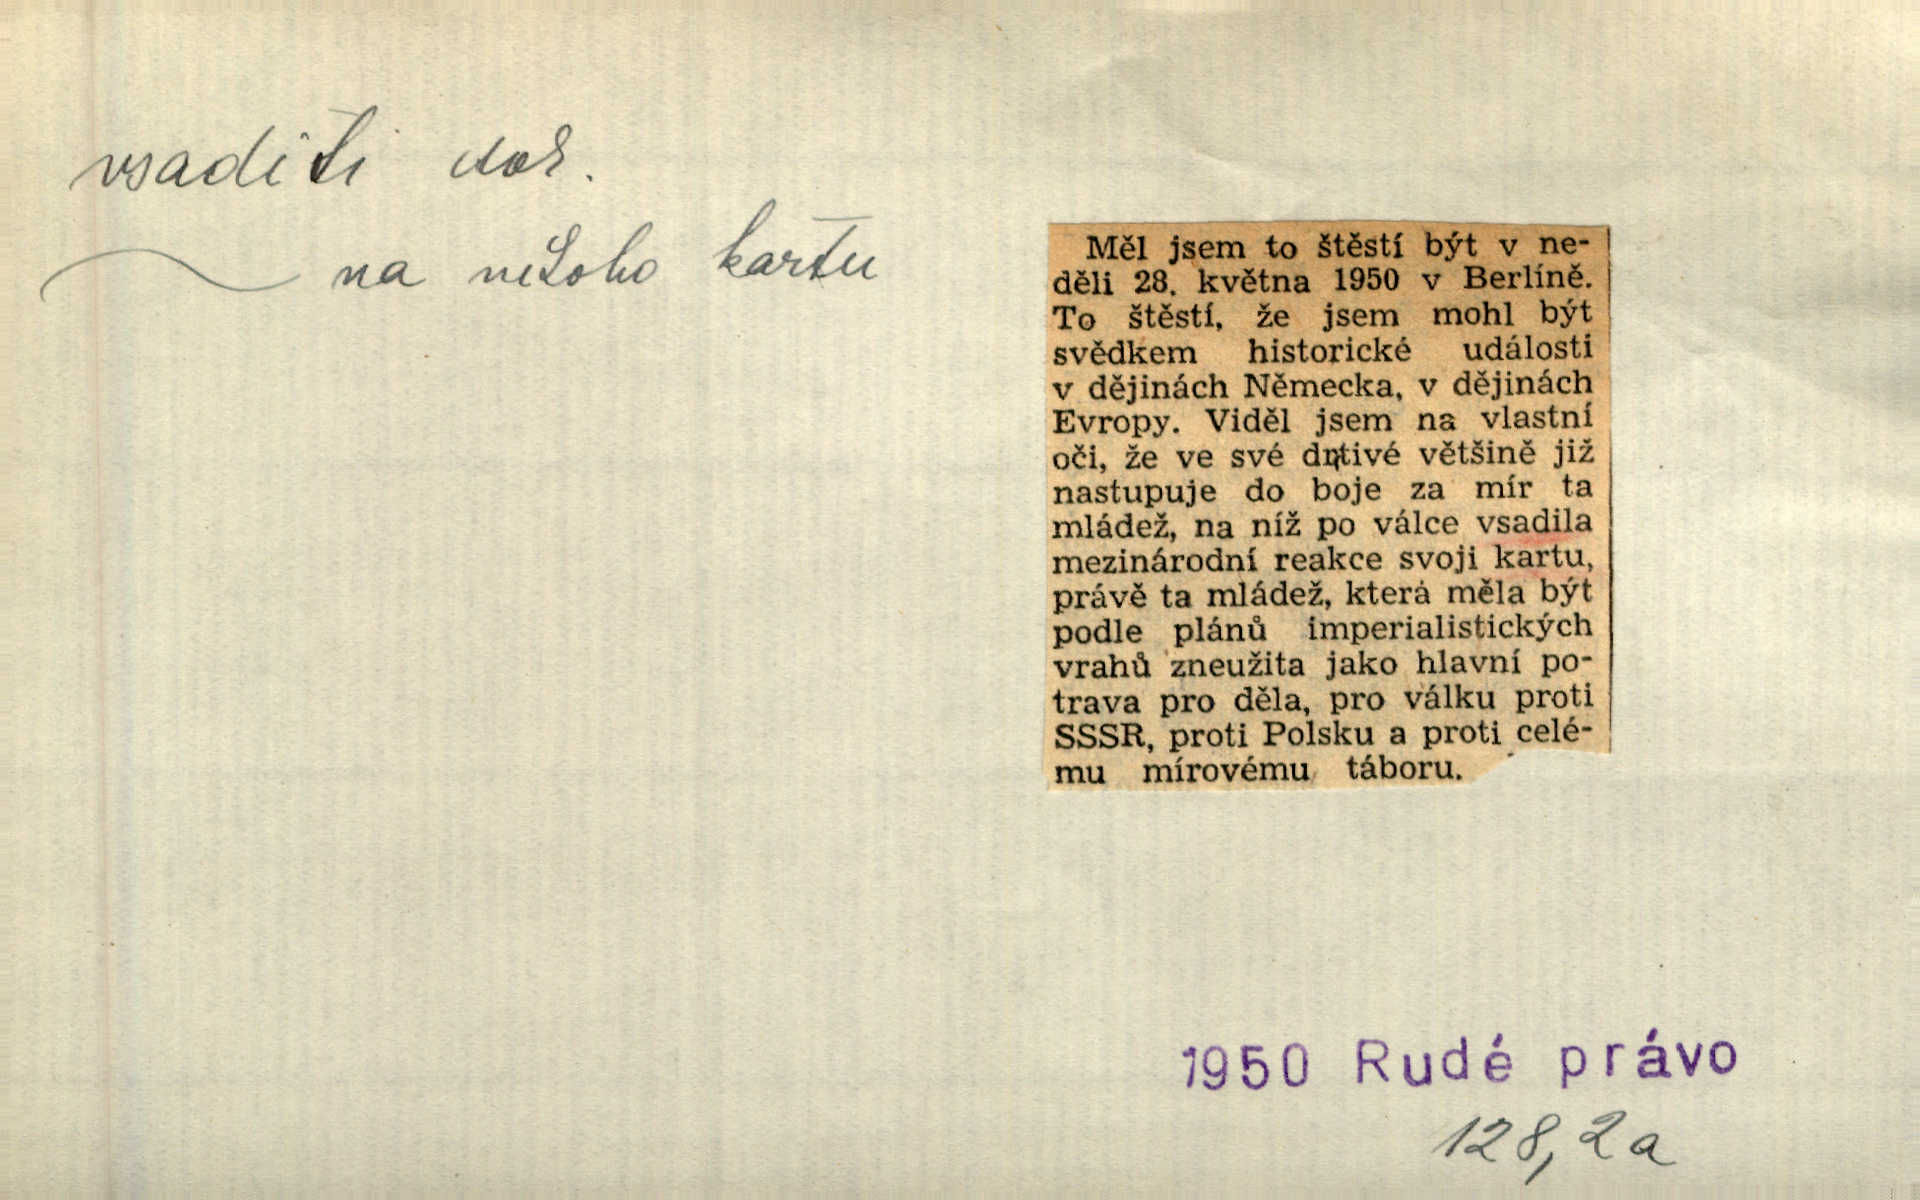 vsaditi dok.
na někoho kartu
Měl jsem to štěstí být v ne-
děli 28. května 1950 v Berlíně.
To štěstí, že jsem mohl být
svědkem historické události
v dějinách Německa, v dějinách
Evropy. Viděl jsem na vlastní
oči, že ve své drtivé většině již
nastupuje do boje za mír ta
mládež, na níž po válce vsadila
mezinárodní reakce svoji kartu,
právě ta mládež, která měla být
podle plánů imperialistických
vrahů zneužita jako hlavní po-
trava pro děla, pro válku proti
SSSR, proti Polsku a proti celé-
mu mírovému táboru.
1950 Rudé právo
128,2a